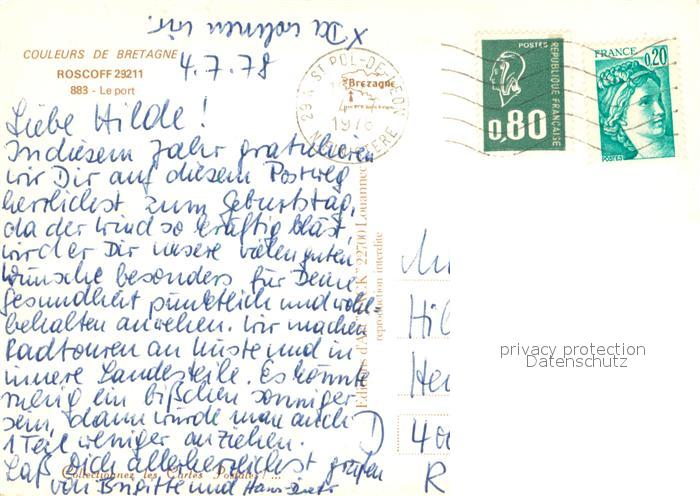 x Da wohnen wir.
COULEURS DE BRETAGNE
ROSCOFF 29211
883 - Le port
4.7.78
Liebe Hilde!
In diesem Jahr gratulieren
wir Dir auf diesem Postweg
herzlichst zum Geburtstag,
da der Wind so kräftig bläst,
wird er Dir unsere vielen guten
Wünsche besonders für Deine
Gesundheit pünktlich und wohl-
behalten anwehen. Wir machen
Radtouren an Küste und in
innere Landesteile. Es könnte
ruhig ein bißchen sonniger
sein, dann würde man auch
1 Teil weniger anziehen.
Laß Dich allerherzlichst grüßen
von Brigitte und Hans-Dieter
Collectionnez les Cartes Postales! ...
Editions d'Art "JACK" 22700 Louannec
reproduction interdite
29 ST POL-DE-LEON
Bretagne
4
1978
FINISTERE
POSTES
REPUBLIQUE FRANÇAISE
0,80
FRANCE
0,20
POSTES
Hil
Hei
R
privacy protection
Datenschutz